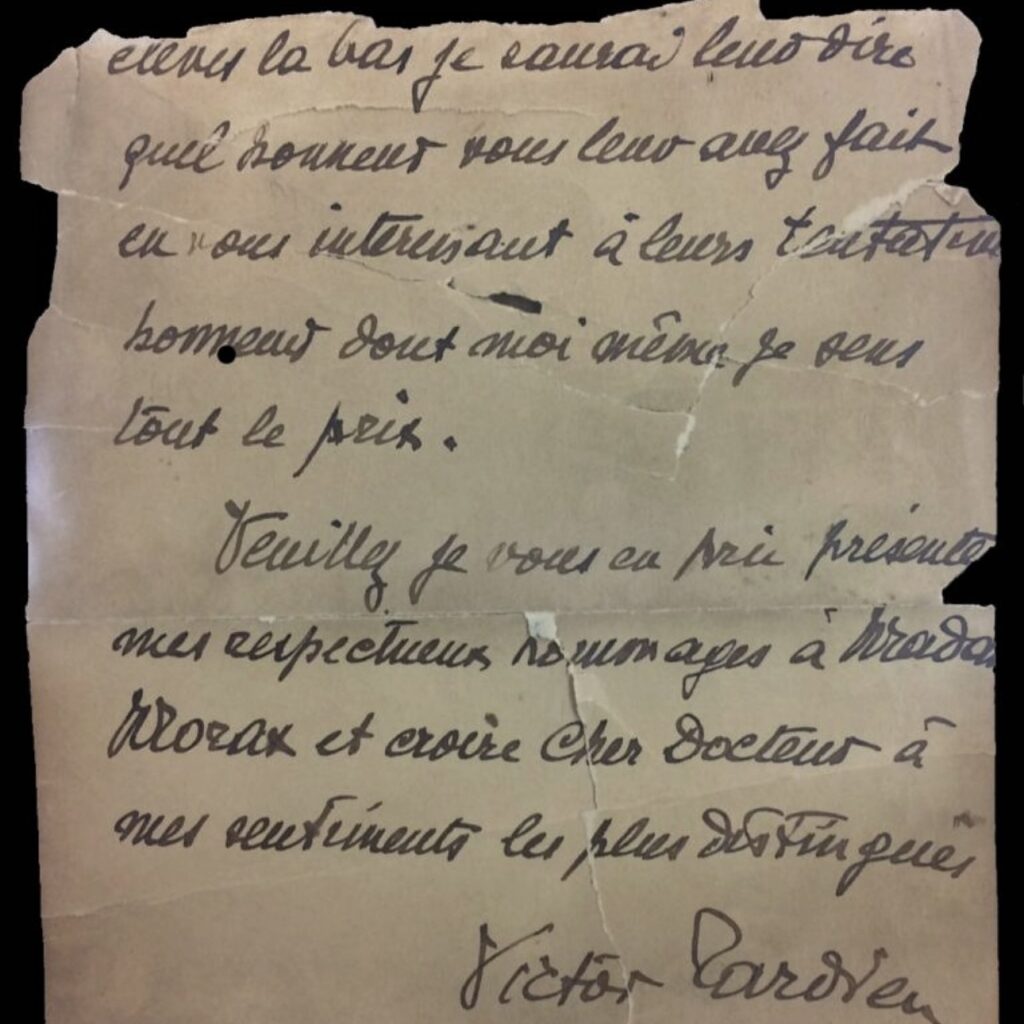 eleves la bas je saurai leur dire
quel honneur vous leur avez fait
en vous interessant à leurs
honneur dont moi même je sens
tout le prix.
Veuillez je vous en prie présente
mes respectueux hommages à Mada
Morax et croire Cher Docteur à
mes sentiments les plus distingués
Victor Tardieu